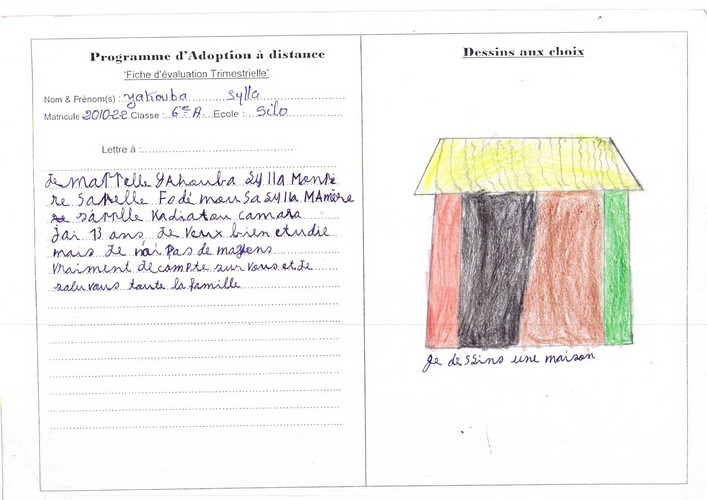 Programme d'Adoption à distance
'Fiche d'évaluation Trimestrielle'
Nom & Prénom(s) : yakouba sylla
Matricule 2010-22 Classe : 6e A. Ecole : Silo
Lettre à :
Je mappelle yakouba Sylla Monpè
re Sapelle Fodé mousa Sylla MAmère
sàpplle Kadiatou camara
jai 13 ans Je veux bien etudie
mais Je n'ai pas de moyens
vraiment Je compte sur vous et Je
salu vous toute la famille
Dessins aux choix
Je dessins une maison